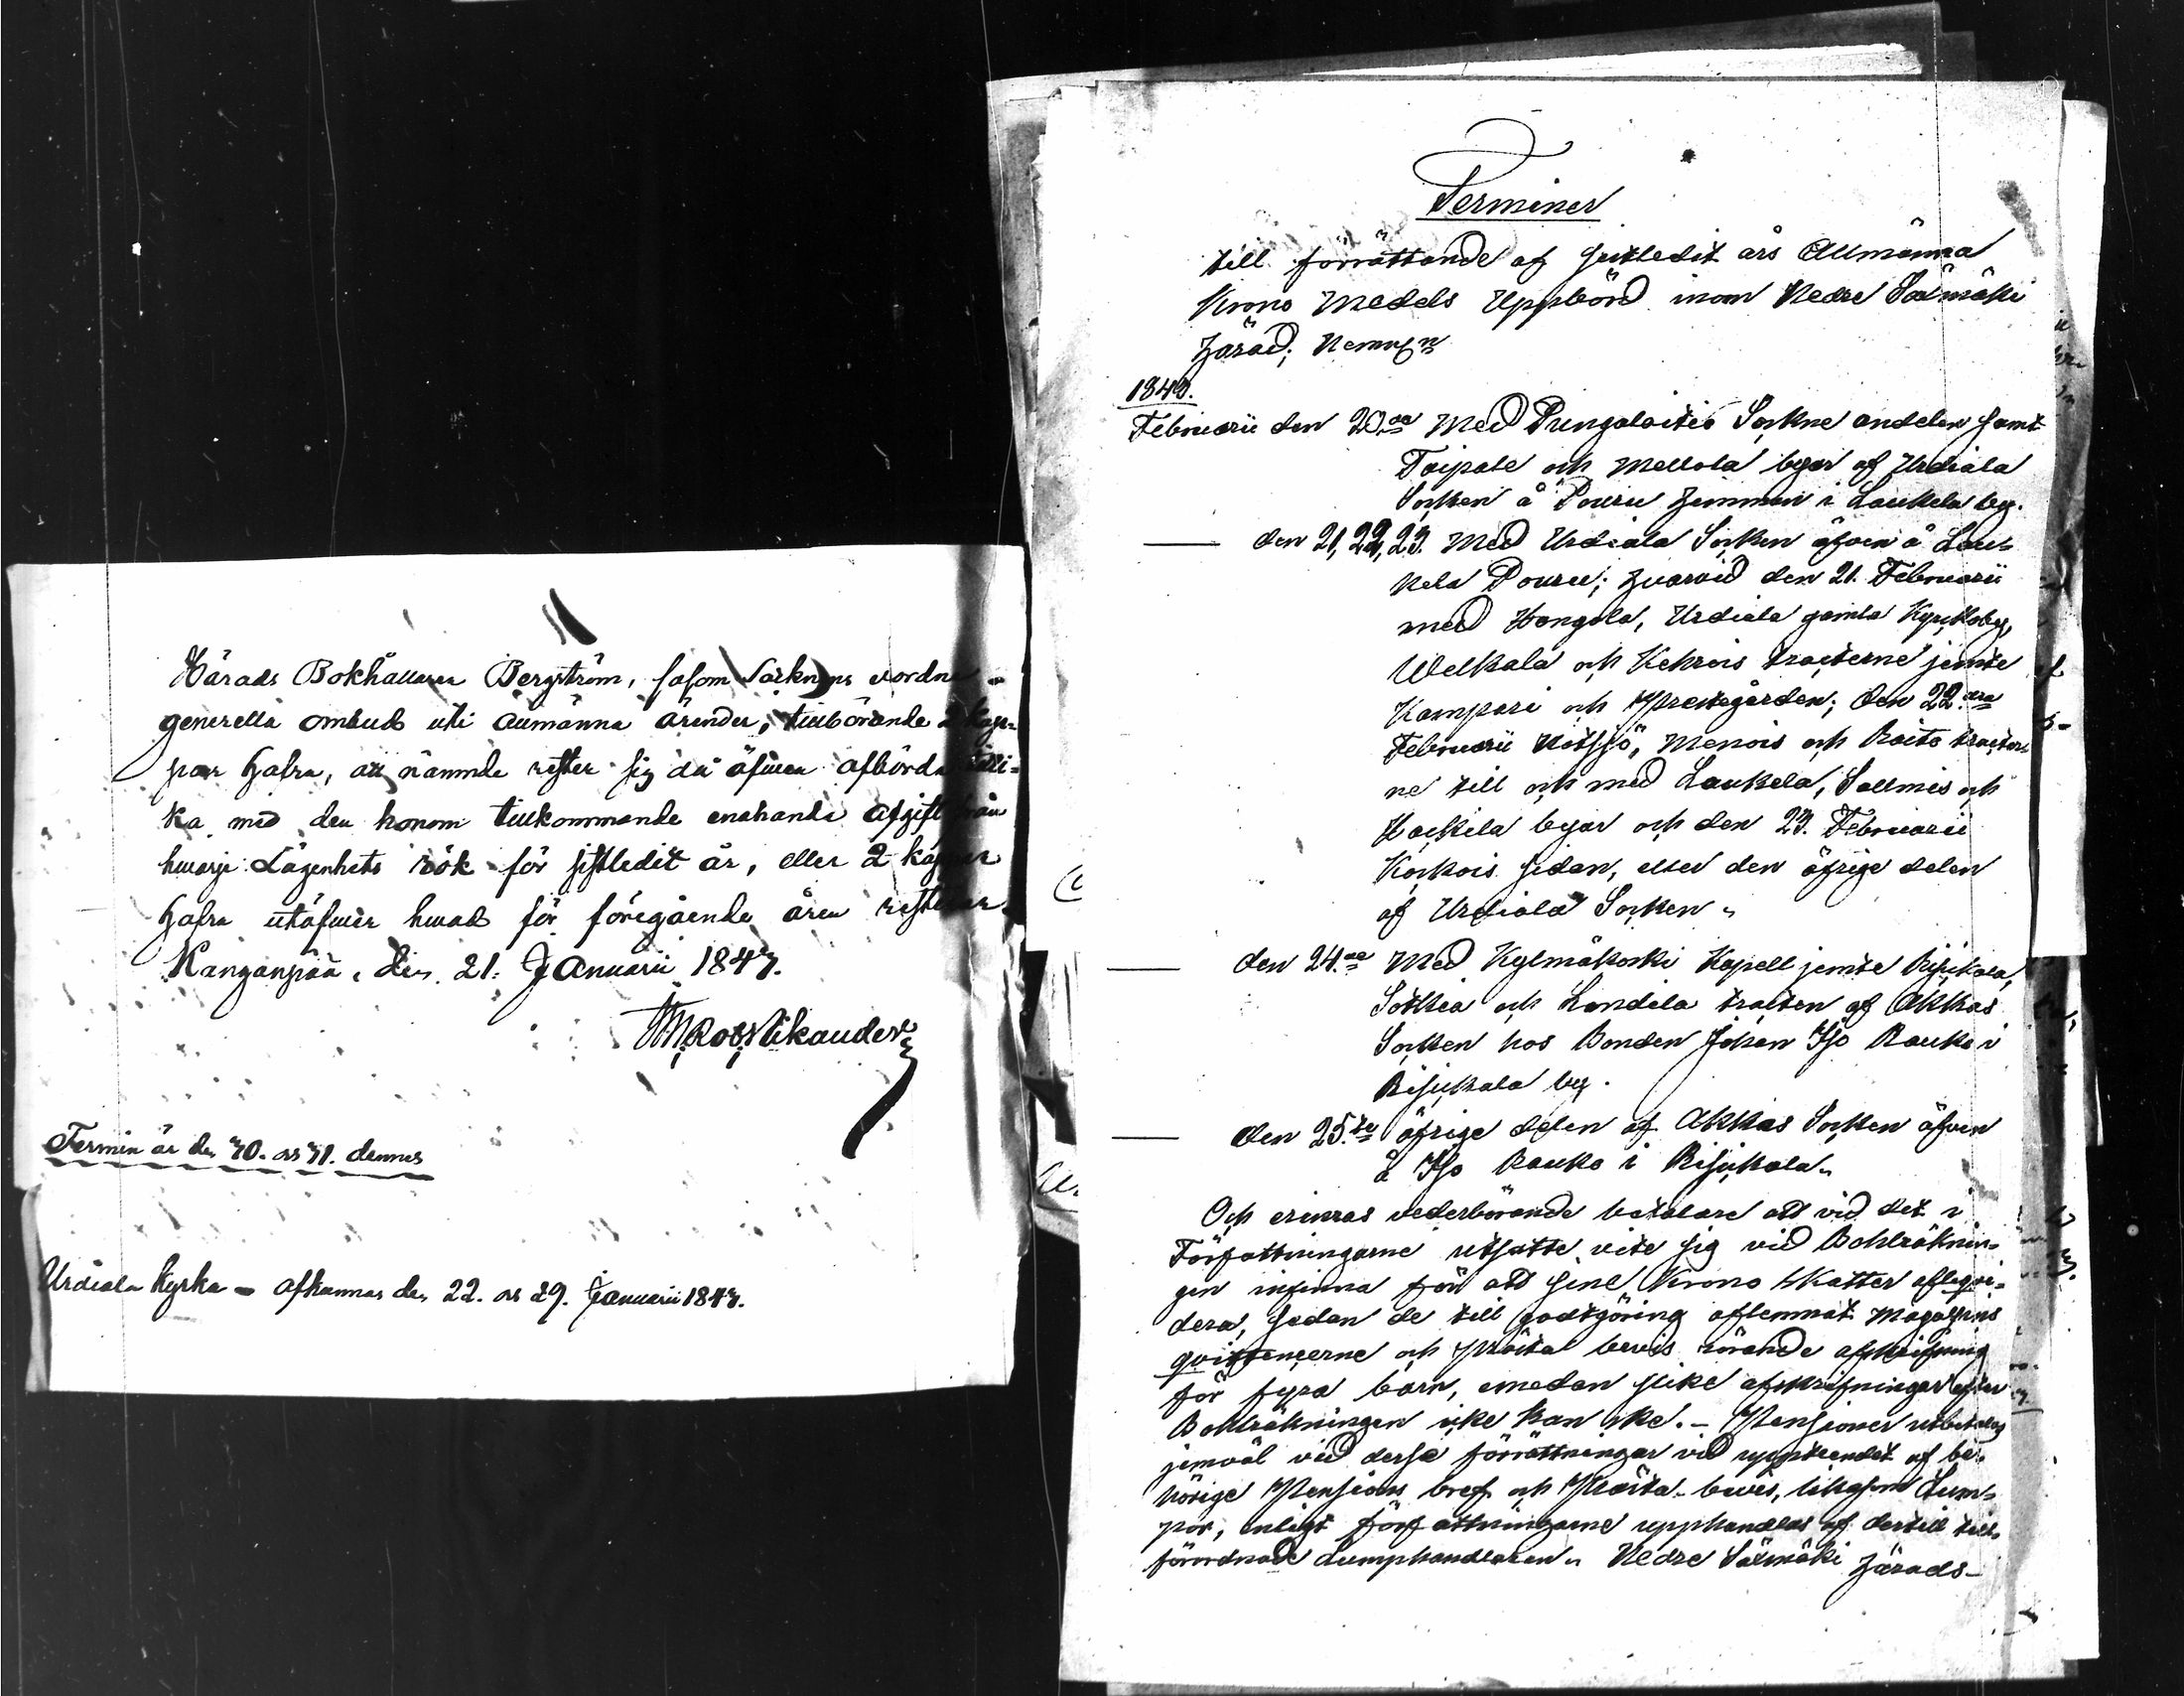 Härads Bokhållaren Bergström, såsom Sockness vordne
generella ombud uti allmänna ärender, tillbörande 2 kap-
par hafra, att nämnde rester sig då äfwen afbörda tilli-
ka med den honom tillkommande enahanda afgift från
hwarje Lägenhets rök för sistledit år, eller 2 kappar
hafra utöfwer hwad för föregående åren resterar.
Kanganpää, den 21. Januarii 1843.
Termin är den 30. och 31. dennes
Urdiala Kyrka - afkunnas den 22. och 29. Januarii 1843.
Terminer
till förrättande af sistledit års Allmänna
Krono Medels Uppbörd inom Nedre Saxmäki
Härad; Nemligen
1843.
Februarii den 20.de Med Pungalaitio Sokne andelen samt
Taipale och Mellola byar af Urdiala
Socken å Pouru hemman i Laukela by.
den 21, 22, 23. Med Urdiala Socken äfven å Lau-
kela Pouru; hvarvid den 21. Februarii
med Hongola, Urdiala gamla Kyrkoby,
Welkala och Kehrois tracterne jemte
Kampari och Prestegården; den 22.dra
Februarii Nötsjö, Menois och Raito tracter-
ne till och med Laukela, Sallmis och
Hackila byar och den 23. Februarii
Korkois sidan, eller den öfrige delen
af Urdiala Socken.
den 24.de Med Kylmäkoski Kapell jemte Risikala,
Sotkia och Kandila tracten af Akkas
Socken hos Bonden Johan Iso Rauko i
Risikala by.
den 25.te öfrige delen af Akkas Socken äfven
å Iso Rauko i Risikala.
Och erinras vederbörande betalare att vid det i
Författningarne utsatte vite sig vid Bokräknin-
gen infinna för att sine Krono Skatter afliqvi-
dera, sedan de till godtgöring aflemnat Magazins
qvittencerne och Prästa bevis rörande afskrifning
för fyra barn, emedan slike afskrifningar efter
Bokräkningen icke kan ske. - Pensioner utbetalas
jemväl vid dessa förrättningar vid uppteendet af be-
hörige Pensions bref och Prästa-bevis, likasom Lum-
por, enligt författningarne upphandlas af dertill till-
förordnade Lumphandlaren. Nedre Saxmäki Härads-